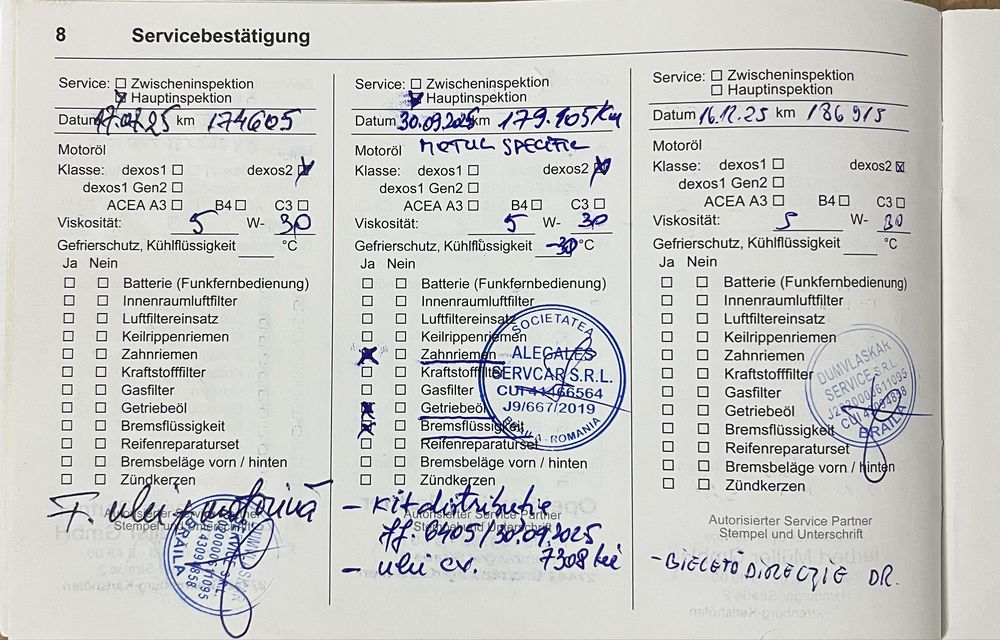 8 Servicebestätigung
Service: ☐ Zwischeninspektion
☒ Hauptinspektion
Datum 25 km 174605
Motoröl
Klasse: dexos1 ☐ dexos2 ☒
dexos1 Gen2 ☐
ACEA A3 ☐ B4 ☐ C3 ☐
Viskosität: 5 W- 30
Gefrierschutz, Kühlflüssigkeit ____ °C
Ja Nein
☐ ☐ Batterie (Funkfernbedienung)
☐ ☐ Innenraumluftfilter
☐ ☐ Luftfiltereinsatz
☐ ☐ Keilrippenriemen
☐ ☐ Zahnriemen
☐ ☐ Kraftstofffilter
☐ ☐ Gasfilter
☐ ☐ Getriebeöl
☐ ☐ Bremsflüssigkeit
☐ ☐ Reifenreparaturset
☐ ☐ Bremsbeläge vorn / hinten
☐ ☐ Zündkerzen
F. ulei
Stempel und Unterschrift
SERVICE S.R.L.
BRAILA
Service: ☐ Zwischeninspektion
☒ Hauptinspektion
Datum 30.09.2025 km 179.105 Km
Motoröl MOTUL SPECIFIC
Klasse: dexos1 ☐ dexos2 ☒
dexos1 Gen2 ☐
ACEA A3 ☐ B4 ☐ C3 ☐
Viskosität: 5 W- 30
Gefrierschutz, Kühlflüssigkeit -30 °C
Ja Nein
☐ ☐ Batterie (Funkfernbedienung)
☐ ☐ Innenraumluftfilter
☐ ☐ Luftfiltereinsatz
☐ ☐ Keilrippenriemen
☒ ☐ Zahnriemen
☐ ☐ Kraftstofffilter
☐ ☐ Gasfilter
☒ ☐ Getriebeöl
☒ ☐ Bremsflüssigkeit
☐ ☐ Reifenreparaturset
☐ ☐ Bremsbeläge vorn / hinten
☐ ☐ Zündkerzen
SOCIETATEA
ALEGALES
SERVCAR S.R.L.
CUI 41466564
J9/667/2019
BRAILA - ROMANIA
- Kit distributie
Autorisierter Service Partner
Stempel und Unterschrift
ff: 6405/30.09.2025
7308 lei
- ulei cv.
Service: ☐ Zwischeninspektion
☐ Hauptinspektion
Datum 16.12.25 km 186915
Motoröl
Klasse: dexos1 ☐ dexos2 ☒
dexos1 Gen2 ☐
ACEA A3 ☐ B4 ☐ C3 ☐
Viskosität: 5 W- 30
Gefrierschutz, Kühlflüssigkeit ____ °C
Ja Nein
☐ ☐ Batterie (Funkfernbedienung)
☐ ☐ Innenraumluftfilter
☐ ☐ Luftfiltereinsatz
☐ ☐ Keilrippenriemen
☐ ☐ Zahnriemen
☐ ☐ Kraftstofffilter
☐ ☐ Gasfilter
☐ ☐ Getriebeöl
☐ ☐ Bremsflüssigkeit
☐ ☐ Reifenreparaturset
☐ ☐ Bremsbeläge vorn / hinten
☐ ☐ Zündkerzen
DUMVLASKAR
SERVICE S.R.L.
BRAILA
Autorisierter Service Partner
Stempel und Unterschrift
- BIELETĂ DIRECȚIE DR.